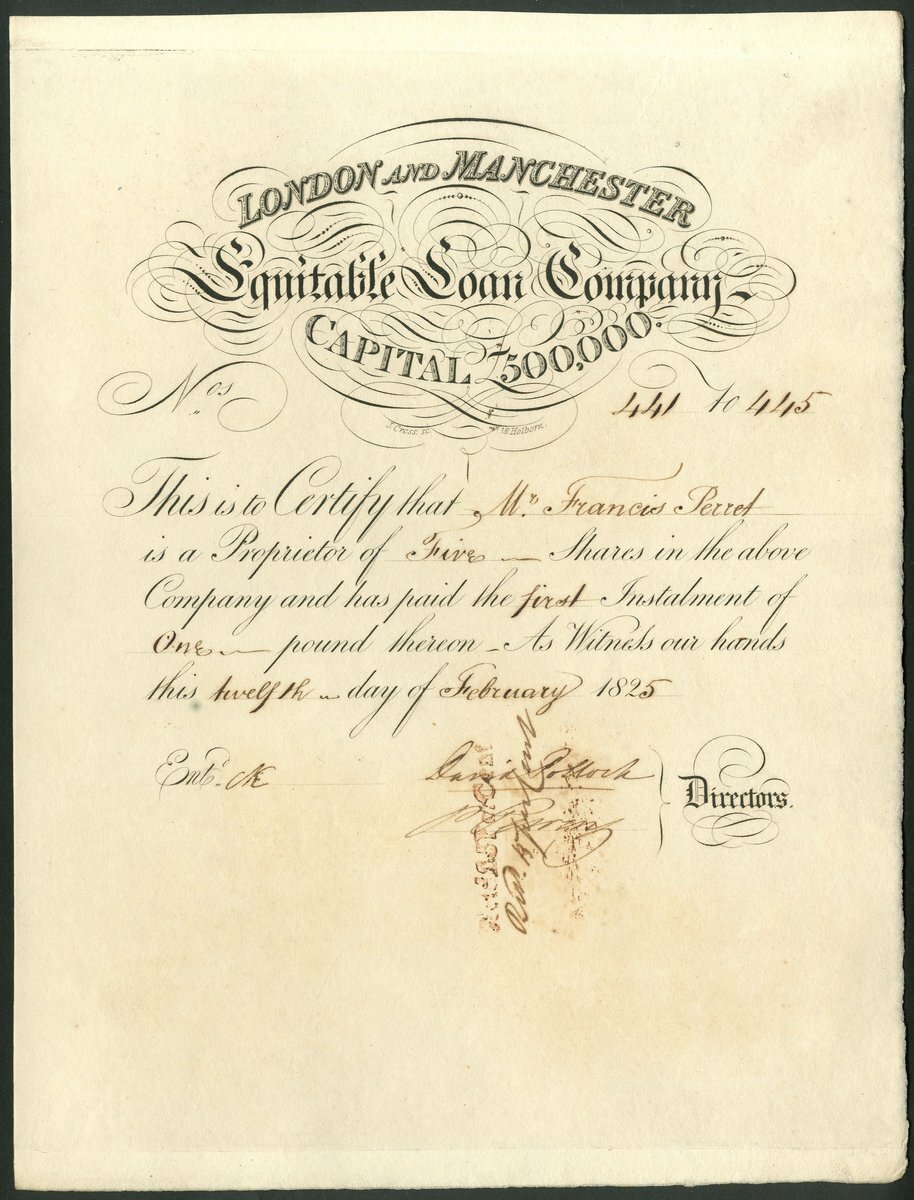 LONDON AND MANCHESTER
Equitable Loan Company
CAPITAL £500,000.
Nos 441 to 445
J. Cross. sc. 18, Holborn.
This is to Certify that Mr. Francis Perret
is a Proprietor of Five Shares in the above
Company and has paid the first Instalment of
One pound thereon - As Witness our hands
this twelfth day of February 1825
Entd.
David Pollock
Directors.